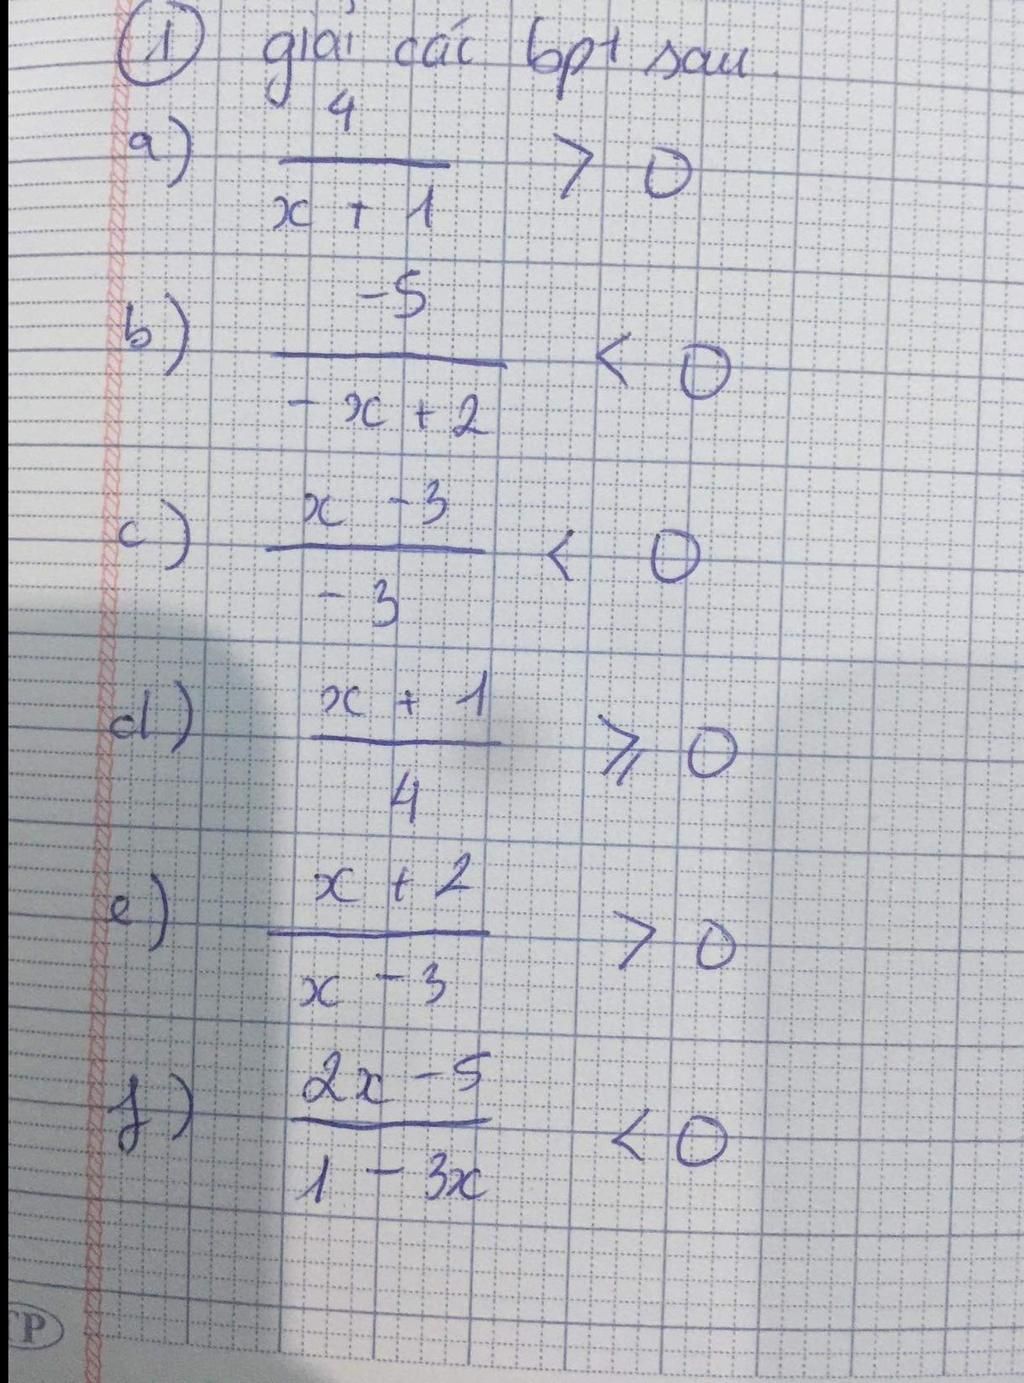 1 giải các bpt sau
a) 4/(x + 1) > 0
b) -5/(-x + 2) < 0
c) (x - 3)/(-3) < 0
d) (x + 1)/4 ⩾ 0
e) (x + 2)/(x - 3) > 0
f) (2x - 5)/(1 - 3x) < 0